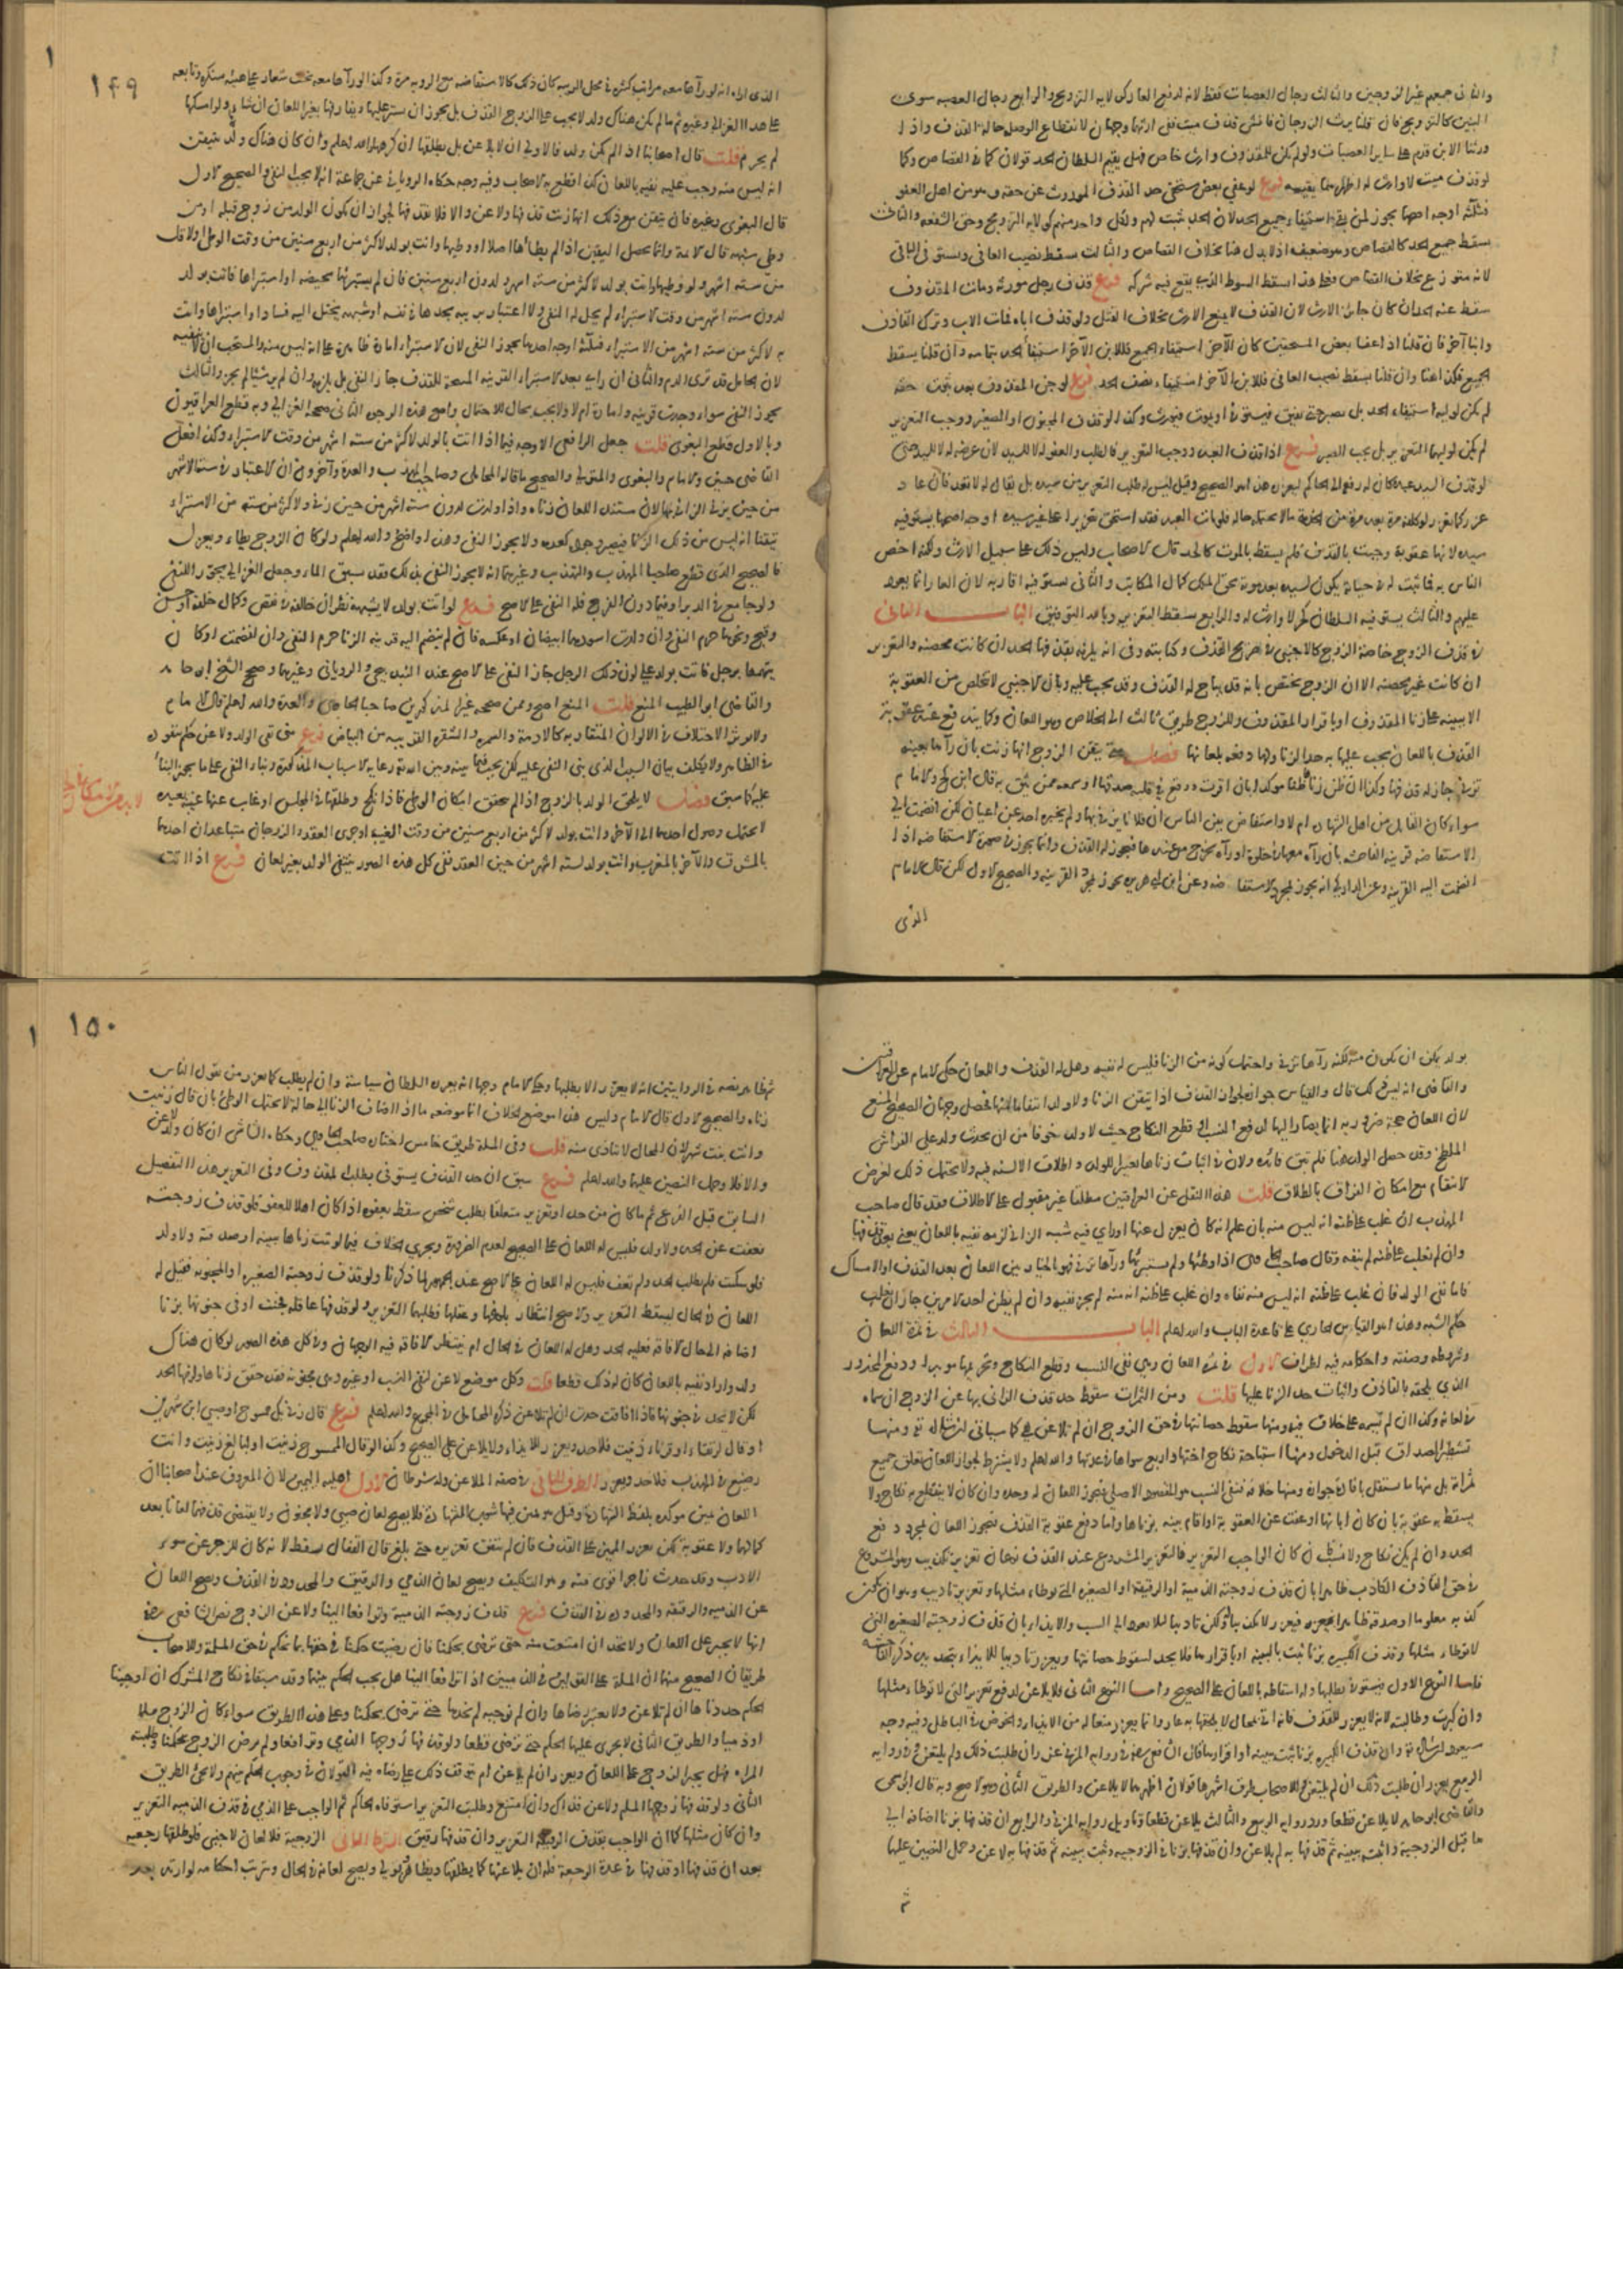 والثاني جميعهم غير الزوجين والثالث رجال العصبات فقط لانه لدفع العار كولاية التزويج والرابع رجال العصبة سوى
البنين كالتزويج فان قلنا يرث الزوجان فانشئ قذف ميت ففي ارثها وجهان لانقطاع الوصلة حالة القذف واذا
ورثنا الابن قدم على ساير العصبات ولو لم يكن للمقذوف وارث خاص فهل يقيم السلطان الحد قولان كما في القصاص وكما
لو قذف ميت لا وارث له اظهرهما يقيمه فرع لو عفى بعض مستحقي حد القذف الموروث عن حقه وهو من اهل العفو
فثلثة اوجه اصحها يجوز لمن بقي استيفاء جميع الحد لان الحد يثبت لهم ولكل واحد منهم كولاية التزويج وحق الشفعة والثاني
يسقط جميع الحد كالقصاص وهو ضعيف اذ لا بدل هنا بخلاف القصاص والثالث يسقط نصيب العافي ويستوفى الباقي
لانه متوزع بخلاف القصاص فعلى هذا يسقط السوط الذي يقع فيه شركة فرع قذف رجل مورثه ومات المقذوف
سقط عنه الحد ان كان حائز الارث لان القذف لا يمنع الارث بخلاف القتل ولو قذف اباه فمات الاب وترك القاذف
وابنا آخر فان قلنا اذا عفا بعض المستحقين كان للآخر استيفاء الجميع فللابن الآخر استيفاء الحد بتمامه وان قلنا يسقط
الجميع فكذا هنا وان قلنا يسقط نصيب العافي فللابن الآخر استيفاء نصف الحد فرع لو جن المقذوف بعد ثبوت حقه
لم يكن لوليه استيفاء الحد بل يصبر حتى يفيق فيستوفي او يموت فيورث وكذا لو قذف المجنون او الصغير ووجب التعزير
لم يكن لوليهما التعزير بل يجب الصبر فرع اذا قذف العبد ووجب التعزير فالطلب والعفو له لا للسيد لان عرضه له لا للسيد حتى
لو قذف السيد عبده كان له رفعه الى الحاكم ليعزره هذا هو الصحيح وقيل ليس له طلب التعزير من سيده بل يقال له لا تعد فان عاد
عزر كما يعزر لو كلفه مرة بعد مرة من الخدمة ما لا يحتمله حاله فلو مات العبد وقد استحق تعزيرا على غير سيده اوجه اصحها يستوفيه
سيده لانها عقوبة وجبت بالقذف فلم يسقط بالموت كالحد قال الاصحاب وليس ذلك على سبيل الارث ولكنه اخص
الناس به فما ثبت له في حياته يكون لسيده بعد موته بحق الملك كمال المكاتب والثاني يستوفيه اقاربه لان العار انما يعود
عليهم والثالث يستوفيه السلطان كحر لا وارث له والرابع يسقط التعزير وبالله التوفيق الباب الثاني
في قذف الزوج خاصة الزوج كالاجنبي في صريح القذف وكنايته وفي انه يلزمه بقذفها الحد ان كانت محصنة والتعزير
ان كانت غير محصنة الا ان الزوج يختص بانه قد يباح له القذف وقد يجب عليه وبان الاجنبي لا يتخلص من العقوبة
الا ببينة على زنا المقذوف او باقرار المقذوف وللزوج طريق ثالث الى الخلاص وهو اللعان وكما يندفع عنه عقوبة
القذف باللعان يجب عليها به حد الزنا ولها دفعه بلعانها فصل متى تيقن الزوج انها زنت بان رآها بعينه
تزني جاز له قذفها وكذا ان ظن زناها ظنا مؤكدا بان اقرت ووقع في قلبه صدقها او سمعه ممن يثق به قال ابن كج والامام
سواء كان القايل من اهل الشهادة ام لا او استفاض بين الناس ان فلانا يزني بها ولم يخبره احد عن اعيان لكن انضمت الى
الاستفاضة قرينة الفاحشة بان رآه معها في خلوة او رآه يخرج من عندها فيجوز له القذف وانما يجوز في صورة الاستفاضة اذا
انضمت اليه القرينة وعن الداركي انه يجوز لمجرد الاستفاضة وعن ابن ابي هريرة يجوز لمجرد القرينة والصحيح الاول لكن قال الامام
الذي
١٤٩
الذي اراه انه لو رآها معه مرات كثيرة في محل الريبة كان ذلك كالاستفاضة مع الرؤية مرة وكذا لو رآها معه تحت شعار على هيئة منكرة وتابعه
على هذا الغزالي وغيره ثم ما لم يكن هناك ولد لا يجب على الزوج القذف بل يجوز ان يستر عليها ويفارقها بغير اللعان ان شاء ولو امسكها
لم يحرم قلت قال اصحابنا اذا لم يكن ولد فالاولى ان لا يلاعن بل يطلقها ان كرهها والله اعلم وان كان هناك ولد يتيقن
انه ليس منه وجب عليه نفيه باللعان كذا قطع به الاصحاب وفيه وجه حكاه الروياني عن جماعة انه لا يجب النفي والصحيح الاول
قال البغوي وغيره فان تيقن مع ذلك انها زنت قذفها ولاعن والا فلا يقذفها لجواز ان يكون الولد من زوج قبله او من
وطي شبهة قال الائمة وانما يحصل اليقين اذا لم يطأها اصلا او وطيها واتت بولد لاكثر من اربع سنين من وقت الوطي او لاقل
من ستة اشهر ولو وطيها واتت بولد لاكثر من ستة اشهر ولدون اربع سنين فان لم يستبرئها بحيضة او استبرأها فاتت بولد
لدون ستة اشهر من وقت الاستبراء لم يحل له النفي ولا اعتبار بريبة يجدها في نفسه او شبهة تخيل اليه فسادا وان استبرأها واتت
به لاكثر من ستة اشهر من الاستبراء فثلثة اوجه احدها يجوز النفي لان الاستبراء امارة ظاهرة على انه ليس منه والمستحب ان لا ينفيه
لان الحامل قد ترى الدم والثاني ان راى بعد الاستبراء القرينة المبيحة للقذف جاز النفي بل يلزمه وان لم ير شيئا لم يجز والثالث
يجوز النفي سواء وجدت قرينة وامارة ام لا ولا يجب بحال للاحتمال واصح هذه الاوجه الثاني صححه الغزالي وبه قطع العراقيون
وبالاول قطع البغوي قلت جعل الرافعي الاوجه فيما اذا اتت بالولد لاكثر من ستة اشهر من وقت الاستبراء وكذا فعل
القاضي حسين والامام والبغوي والمتولي والصحيح ما قاله المحاملي وصاحبا المهذب والعدة وآخرون ان الاعتبار في ستة الاشهر
من حين يزني الزاني بها لان مستند اللعان زناه واذا ولدت لدون ستة اشهر من حين زنى ولاكثر من ستة من الاستبراء
تيقنا انه ليس من ذلك الزنا فيصير وجوده كعدمه ولا يجوز النفي وهذا واضح والله اعلم ولو كان الزوج يطاء ويعزل
فالصحيح الذي قطع صاحبا المهذب والتهذيب وغيرهما انه لا يجوز النفي بذلك فقد سبق الماء وجعل الغزالي مجوزا للنفي
ولو جامع في الدبر او فيما دون الفرج فله النفي على الاصح فرع لو اتت بولد لا يشبهه نظر ان خالفه في نقص وكمال خلقة او حسن
وقبح ونحوها حرم النفي وان ولدت اسود وهما ابيضان او عكسه فان لم ينضم اليه قرينة الزنا حرم النفي وان انضمت او كان
يتهمها برجل فاتت بولد على لون ذلك الرجل جاز النفي على الاصح عند البندنيجي والروياني وغيرهما وصحح الشيخ ابو حامد
والقاضي ابو الطيب المنع قلت المنع اصح وممن صححه غير المذكورين صاحبا الحاوي والعدة والله اعلم قال الامام
ولا يؤثر الاختلاف في الالوان المتقاربة كالادمة والسمرة والشقرة القريبة من البياض فرع متى نفى الولد ولاعن حكم بنفوذه
في الظاهر ولا يكلف بيان السبب الذي بنى النفي عليه لكن يجب فيما بينه وبين الله تعالى رعاية الاسباب المذكورة وبناء النفي على ما يجوز البناء
عليه كما سبق فصل لا يلحق الولد بالزوج اذا لم يتحقق امكان الوطي فاذا نكح وطلقها في المجلس او غاب عنها غيبة بعيدة
لا يحتمل وصول احدهما الى الآخر واتت بولد لاكثر من اربع سنين من وقت الغيبة او جرى العقد والزوجان متباعدان احدهما
بالمشرق والآخر بالمغرب واتت بولد لستة اشهر من حين العقد ففي كل هذه الصور ينتفي الولد بغير لعان فرع اذا اتت
بولد يمكن ان يكون منه لكنه رآها تزني واحتمل كونه من الزنا فليس له نفيه وهل له القذف واللعان حكى الامام عن العراقيين
والقاضي انه ليس له ذلك قال والقياس جوازه كجواز القذف اذا تيقن الزنا ولا ولد انتقاما منها فحصل وجهان الصحيح المنع
لان اللعان حجة ضرورية انما يصار اليها لدفع النسب او قطع النكاح حيث لا ولد خوفا من ان يحدث ولد على الفراش
الملطخ وقد حصل الولد هنا فلم تبق فائدة ولان في اثبات زناها تعييرا للولد واطلاق الالسنة فيه ولا يحتمل ذلك لغرض
الانتقام مع امكان الفراق بالطلاق قلت هذا النقل عن العراقيين مطلقا غير مقبول على الاطلاق فقد قال صاحب
المهذب ان غلب على ظنه انه ليس منه بان علم انه كان يعزل عنها او راى فيه شبه الزاني لزمه نفيه باللعان يعني بعد قذفها
وان لم يغلب على ظنه لم ينفه وقال صاحب الحاوي اذا وطئها ولم يستبرئها ورآها تزني فهو بالخيار بين اللعان بعد القذف او الامساك
فاما نفي الولد فان غلب على ظنه انه ليس منه نفاه وان غلب على ظنه انه منه لم يجز نفيه وان لم يظن احد الامرين جاز ان يغلب
حكم الشبه وهذا هو القياس الجاري على قاعدة الباب والله اعلم الباب الثالث في ثمرة اللعان
وشروطه وصفته واحكامه فيه اطراف الاول في ثمرة اللعان وهي نفي النسب وقطع النكاح وتحريمها مؤبدا ودفع المحذور
الذي يلحقه بالقذف واثبات حد الزنا عليها قلت ومن الثمرات سقوط حد قذف الزاني بها عن الزوج ان سماه
في لعانه وكذا ان لم يسمه على خلاف فيه ومنها سقوط حصانتها في حق الزوج ان لم تلاعن هي كما سياتي ان شاء الله تعالى ومنها
تشطير الصداق قبل الدخول ومنها استباحة نكاح اختها واربع سواها في عدتها والله اعلم ولا يشترط لجواز اللعان تعلق جميع
ثمراته بل منها ما يستقل بافادة جوازه ومنها خلافه فنفي النسب هو المقصود الاصلي فيجوز اللعان له وحده وان كان لا ينقطع به نكاح ولا
يسقط به عقوبة بان كان ابانها او عفت عن العقوبة او اقام بينة بزناها واما دفع عقوبة القذف فيجوز اللعان لمجرد دفع
الحد وان لم يكن نكاح ولا نسب وان كان الواجب التعزير فالتعزير المشروع عند القذف نوعان تعزير تكذيب وهو المشروع
في حق القاذف الكاذب ظاهرا بان قذف زوجته الذمية او الرقيقة او الصغيرة التي يوطا مثلها وتعزير تاديب وهو ان يكون
كذبه معلوما او صدقه ظاهرا فيعزر لا تكذيبا له ولكن تاديبا لئلا يعود الى السب والايذاء بان قذف زوجته الصغيرة التي
لا توطا مثلها وقذف الكبيرة بزنا ثبت بالبينة او باقرارها فلا يحد لسقوط حصانتها ويعزر تاديبا للايذاء
فاما النوع الاول فيستوفى بطلبها وله اسقاطه باللعان على الصحيح واما النوع الثاني فلا يلاعن لدفع تعزير التي لا توطا مثلها
وان كبرت وطالبت لانه لا يعزر للقذف فانه في الحال لا يلحقها به عار وانما يعزر منعا له من الايذاء والخوض في الباطل وفيه وجه
سيعود ان شاء الله تعالى وان قذف الكبيرة بزنا ثبت ببينة او اقرارها فقال الشافعي رضي الله عنه في رواية المزني عزر ان طلبت ذلك ولم يلتعن وفي رواية
الربيع يعزر ان طلبت ذلك ان لم يلتعن وللاصحاب طرق اشهرها قولان اظهرهما لا يلاعن والطريق الثاني وهو الاصح وبه قال ابو اسحق
والقاضي ابو حامد لا يلاعن قطعا ورد رواية الربيع والثالث يلاعن قطعا وتاويل رواية المزني والرابع ان قذفها بزنا اضافه الى
ما قبل الزوجية واثبته ببينة ثم قذفها به لم يلاعن وان قذفها بزنا في الزوجية وثبت ببينة ثم قذفها به لاعن وحمل النصين عليها
ثم
١٥٠
ظاهر نصه في الروايتين انه لا يعزر الا بطلبها وحكى الامام وجها انه يعزره السلطان سياسة وان لم يطلب كما يعزر من يقول الناس
زناة والصحيح الاول قال الامام وليس هذا موضع الخلاف انما موضعه ما اذا اضاف الزنا الى حالة لا يحتمل الوطئ بان قال زنيت
وانت بنت شهر لان المحال لا يتاذى منه قلت وفي المسئلة طريق خامس اختاره صاحب الحاوي وحكاه الشاشي ان كان ولد لاعن
والا فلا وحمل النصين عليهما والله اعلم فرع سبق ان حد القذف يستوفى بطلب المقذوف وفي التعزير هذا التفصيل
السابق قبل الفرع ثم ما كان من حد او تعزير متعلقا بطلب شخص سقط بعفوه اذا كان اهلا للعفو فلو قذف زوجته
فعفت عن الحد ولا ولد فليس له اللعان على الصحيح لعدم الضرورة ويجري الخلاف فيما لو ثبت زناها ببينة او صدقته ولا ولد
فلو سكتت فلم يطلب الحد ولم تعف فليس له اللعان على الاصح عند الجمهور لما ذكرنا ولو قذف زوجته الصغيرة او المجنونة فقيل له
اللعان في الحال ليسقط التعزير والاصح انتظار بلوغها وعقلها فطلبهما التعزير ولو قذفها عاقلة فجنت او في جنونها بزنا
اضافه الى حال الافاقة فعليه الحد وهل له اللعان في الحال ام ينتظر الافاقة فيه الوجهان وفي كل هذه الصور لو كان هناك
ولد واراد نفيه باللعان كان له ذلك قطعا قلت وكل موضع لاعن لنفي النسب او غيره وهي مجنونة فقد حقق زناها ولزمها الحد
لكن لا تحد في جنونها فاذا افاقت حدت ان لم تلاعن ذكره المحاملي في المجموع والله اعلم فرع قال زنى بك ممسوح او صبي ابن شهرين
او قال لرتقاء او قرناء زنيت فلا حد ويعزر للايذاء ولا يلاعن على الصحيح وكذا لو قال الممسوح زنيت او لبالغ زنيت وانت
رضيع في المهد فلا حد ويعزر الطرف الثاني في صفة الملاعن وله شرطان الاول اهلية اليمين لان المعروف عند اصحابنا ان
اللعان يمين مؤكدة بلفظ الشهادة وقيل هو يمين فيها شوب الشهادة فلا يصح لعان صبي ولا مجنون ولا يقتضي قذفهما لعانا بعد
كمالهما ولا عقوبة لكن يعزر المميز على القذف فان لم يتفق تعزيره حتى بلغ قال القفال يسقط لانه كان للزجر عن سوء
الادب وقد حدث زاجر اقوى منه وهو التكليف ويصح لعان الذمي والرقيق والمحدود في القذف ويصح اللعان
عن الذمية والرقيقة والمحدودة في القذف فرع قذف زوجته الذمية وترافعا الينا ولاعن الزوج نص الشافعي رضي
انها لا تجبر على اللعان ولا تحد ان امتنعت منه حتى ترضى بحكمنا فان رضيت حكمنا في حقها بما نحكم في حق المسلمة وللاصحاب
طريقان الصحيح منهما ان المسئلة على القولين في الذميين اذا ترافعا الينا هل يجب الحكم بينهما وقد سبقا في نكاح المشرك ان اوجبنا
الحكم حددناها ان لم تلاعن ولا يعتبر رضاها وان لم نوجبه لم نحدها حتى ترضى بحكمنا وعلى هذا الطريق سواء كان الزوج مسلما
او ذميا والطريق الثاني لا يجرى عليها الحكم حتى ترضى قطعا ولو قذفها زوجها الذمي وترافعا ولم يرض الزوج بحكمنا وطلبته
المراة فهل يجبر الزوج على اللعان ويعزر ان لم يلاعن ام يتوقف ذلك على رضاه فيه القولان في وجوب الحكم بينهم ولا يجئ الطريق
الثاني ولو قذفها زوجها المسلم ولاعن فذاك وان امتنع وطلبت التعزير استوفاه الحاكم ثم الواجب على الذمي في قذف الذمية التعزير
وان كان مثلها كما ان الواجب بقذف الرقيقة التعزير وان قذفها رقيق الشرط الثاني الزوجية فلا لعان لاجنبي فلو طلقها رجعية
بعد ان قذفها او قذفها في عدة الرجعة فله ان يلاعنها كما يطلقها ويظاهر ويولي ويصح لعانه في الحال ويترتب احكامه لوارثه بعد